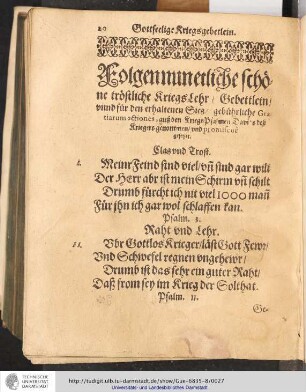 20 Gottseelige Kriegsgebetlein.
Folgen nun etliche schö-
ne tröstliche Kriegs Lehr / Gebettlein /
vnnd für den erhaltenen Sieg / gebührliche Gra-
tiarum actiones, auß den Psalmen Davids deß
Kriegers genommen / vnd promiscuè
gesetzt.
Clag vnd Trost.
I. Meinr Feind sind viel / vñ sind gar wild
Der Herr abr ist mein Schirm vñ schilt
Drumb fürcht ich nit viel 1000 mañ
Für ihn ich gar wol schlaffen kan.
Psalm. 3.
Raht vnd Lehr.
II. Vbr Gottlos Krieger / läst Gott Fewr /
Vnd Schwefel regnen vngehewr /
Drumb ist das sehr ein guter Raht /
Daß from sey im Krieg der Soldat.
Psalm. 11.
Ge-
TECHNISCHE
UNIVERSITÄT
DARMSTADT
http://tudigit.ulb.tu-darmstadt.de/show/Gue-6835-8/0027
Universitäts- und Landesbibliothek Darmstadt